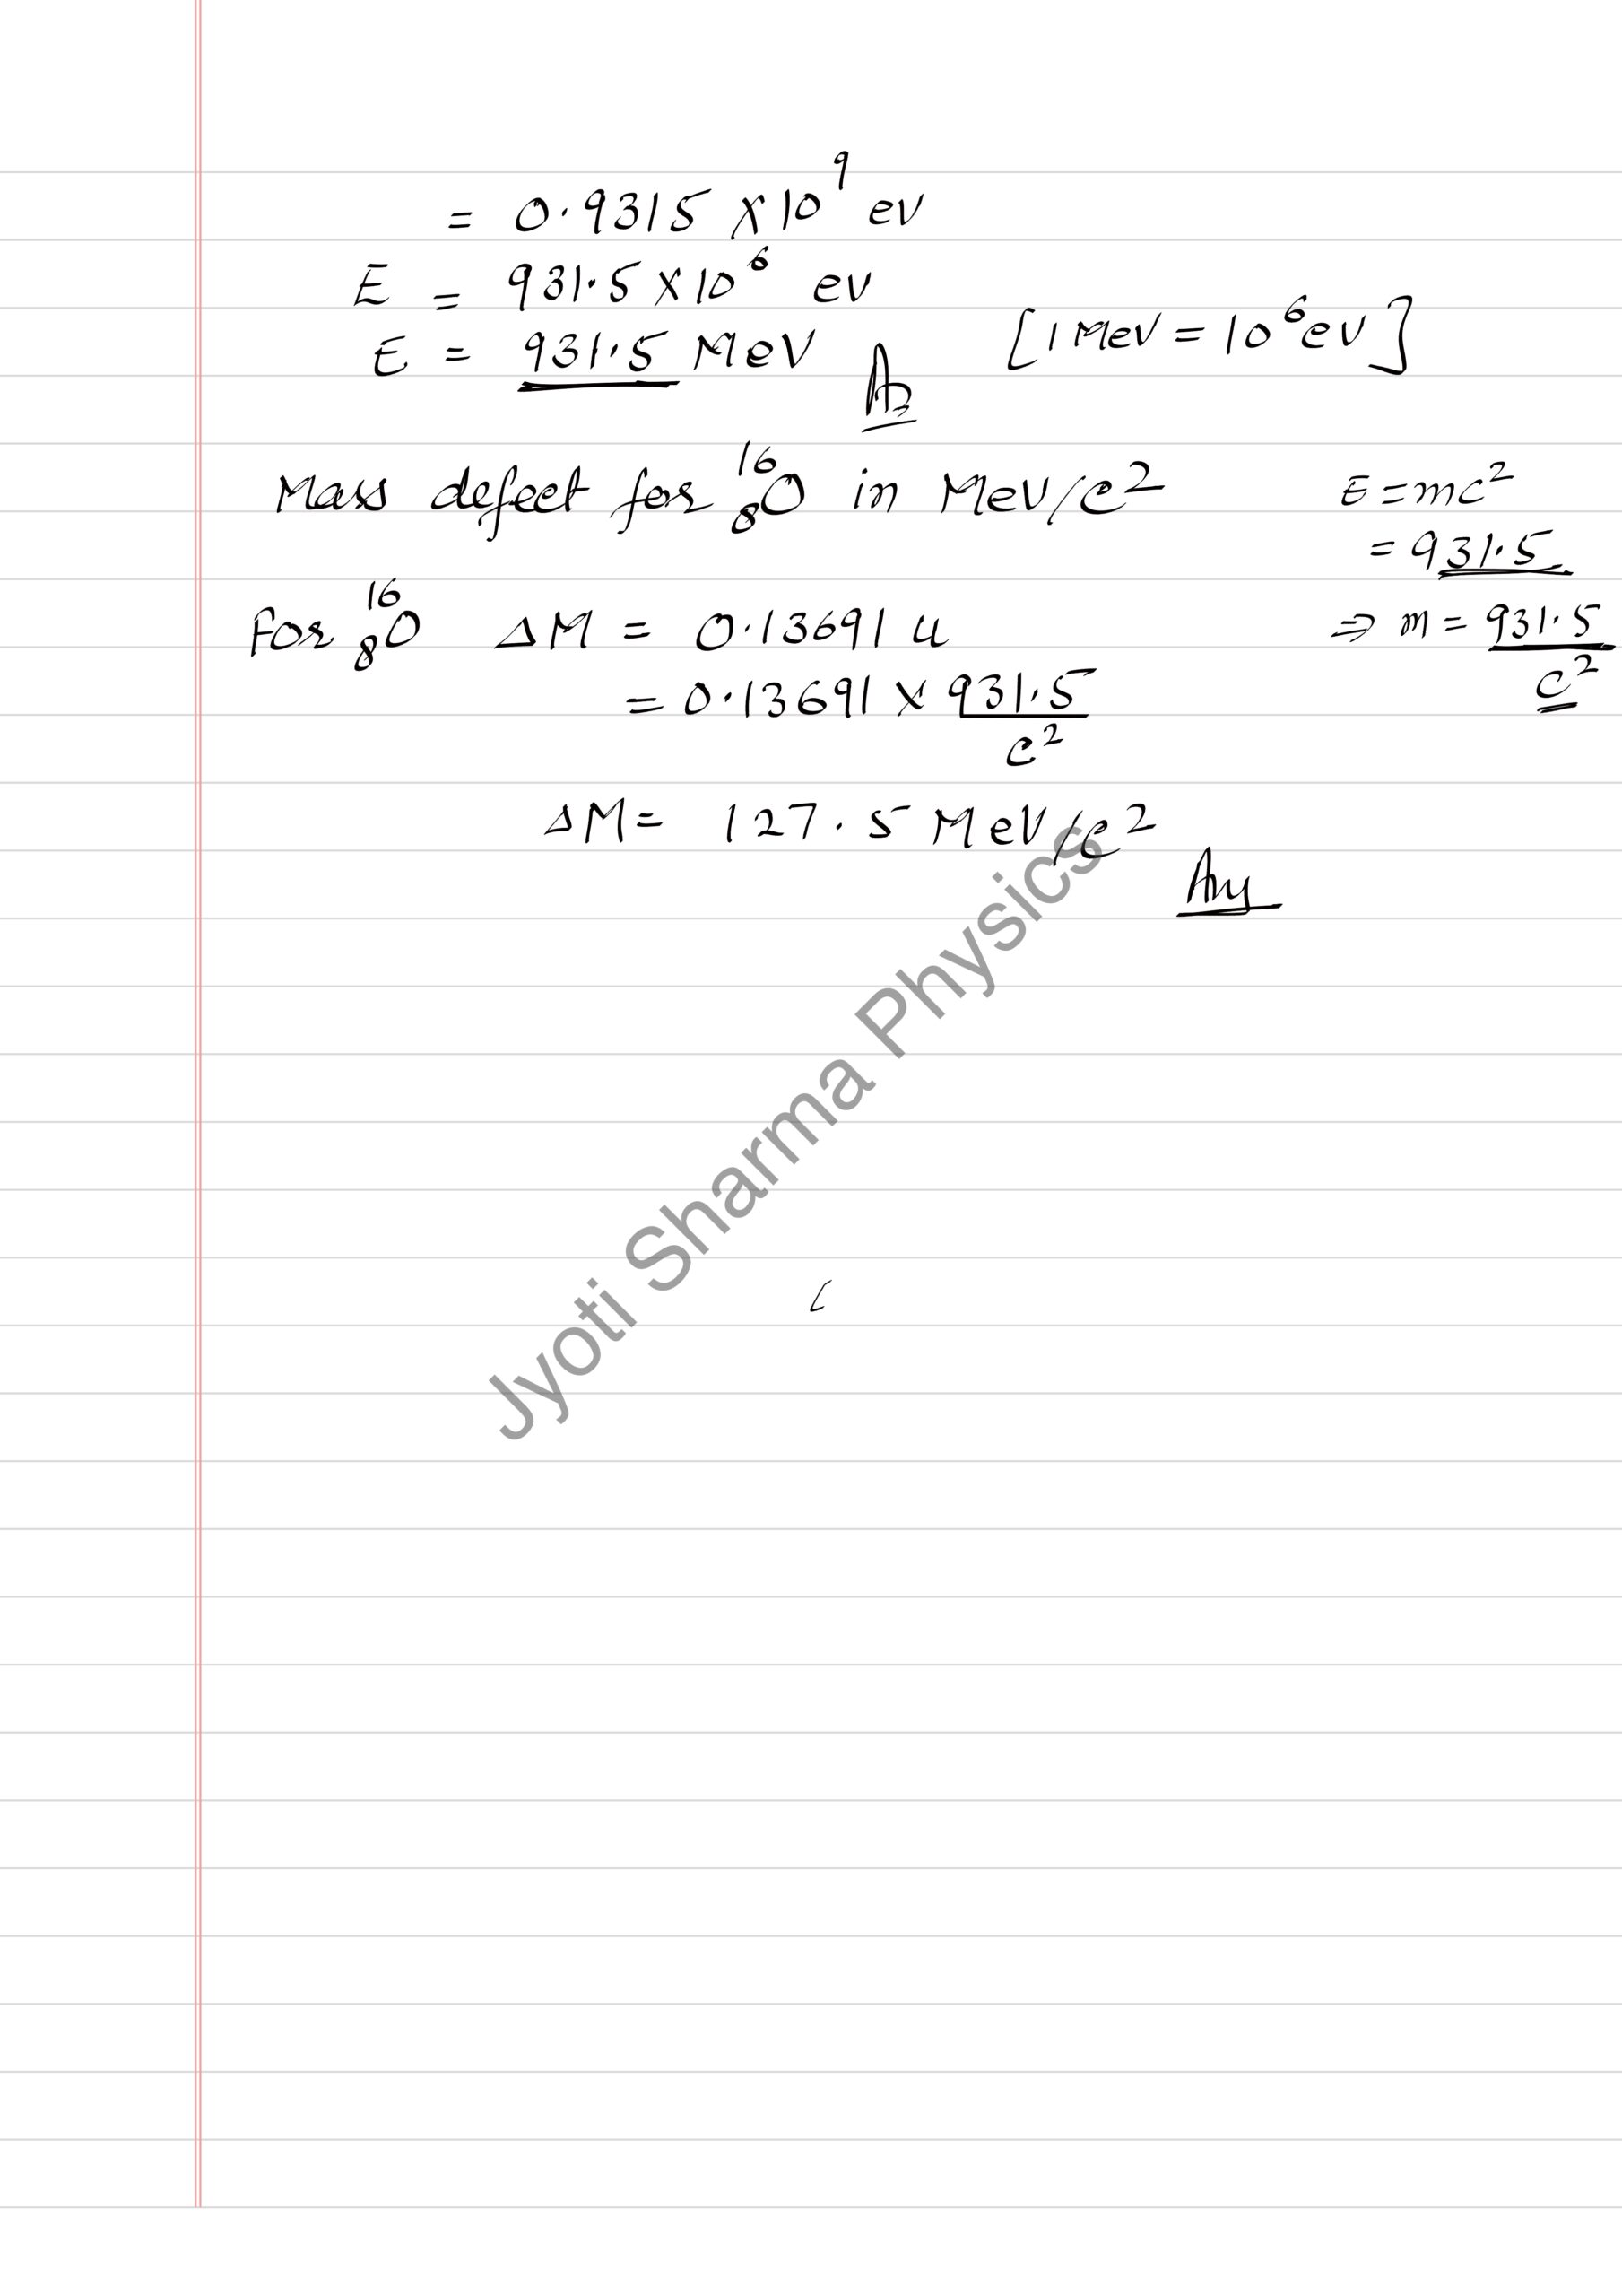 = 0.9315 X10⁹ ev
E = 931.5 X10⁶ ev
E = 931.5 MeV Ans [1 Mev = 10⁶ev]
Mass defect for ₈¹⁶O in MeV/c² E = mc²
= 931.5
For ₈¹⁶O ΔM = 0.13691 u ⇒ m = 931.5/c²
= 0.13691 x 931.5/c²
ΔM = 127.5 MeV/c²
Ans
Jyoti Sharma Physics